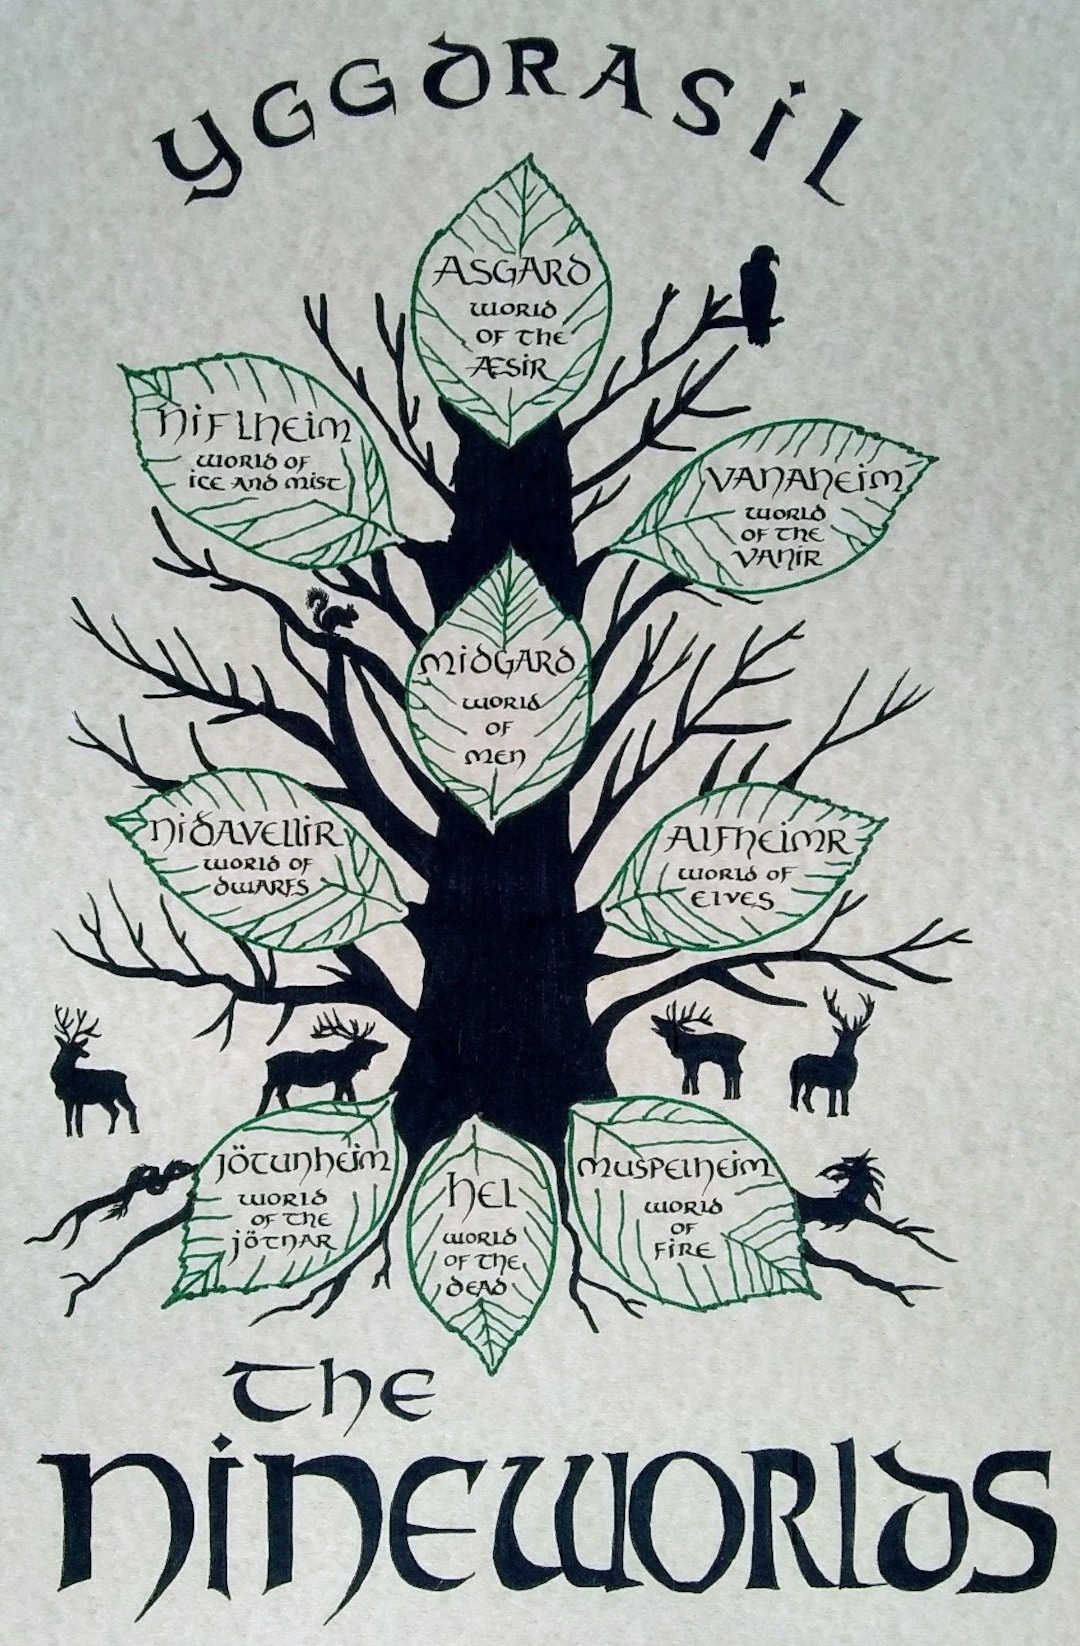 YGGDRASIL
ASGARD
WORLD
OF THE
ÆSIR
NIFLHEIM
WORLD OF
ICE AND MIST
VANAHEIM
WORLD
OF THE
VANIR
MIDGARD
WORLD
OF
MEN
NIÐAVELLIR
WORLD OF
DWARFS
ALFHEIMR
WORLD OF
ELVES
JÖTUNHEIM
WORLD
OF THE
JÖTNAR
HEL
WORLD
OF THE
DEAD
MUSPELHEIM
WORLD
OF
FIRE
THE
NINEWORLDS